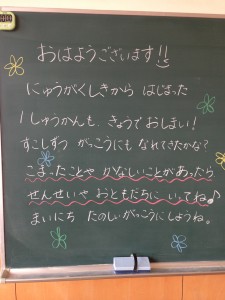 おはようございます!!
にゅうがくしきから はじまった
1しゅうかんも、きょうでおしまい!
すこしずつ がっこうにも なれてきたかな?
こまったことや かなしいことがあったら
せんせいや おともだちに いってね♪
まいにち たのしいがっこうにしようね。